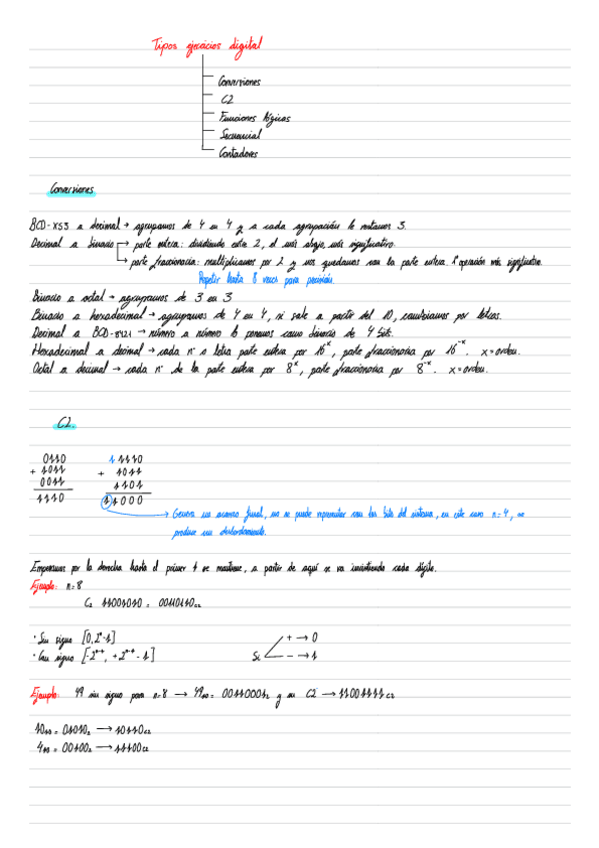 Tipos ejercicios digital
Conversiones
C2
Funciones lógicas
Secuencial
Contadores
Conversiones
BCD-XS3 a decimal → agrupamos de 4 en 4 y a cada agrupación le restamos 3.
Decimal a binario → parte entera: dividiendo entre 2, el más abajo, más significativo.
→ parte fraccionaria: multiplicamos por 2 y nos quedamos con la parte entera. 1ª operación más significativa.
Repetir hasta 8 veces para precisión.
Binario a octal → agrupamos de 3 en 3
Binario a hexadecimal → agrupamos de 4 en 4, si sale a partir del 10, cambiamos por letras.
Decimal a BCD-8421 → número a número lo ponemos como binario de 4 bits.
Hexadecimal a decimal → cada nº o letra parte entera por 16^x, parte fraccionaria por 16^-x. x=orden.
Octal a decimal → cada nº de la parte entera por 8^x, parte fraccionaria por 8^-x. x=orden.
C2.
0110 1 1110
+ 1011 + 1011
0011 1101
1110 11000
→ Genera un acarreo final, no se puede representar con los bits del sistema, en este caso n=4, se
produce un desbordamiento.
Empezamos por la derecha hasta el primer 1 se mantiene, a partir de aquí se va invirtiendo cada dígito.
Ejemplo: n=8
C2 11001010 = 00110110c2
· Sin signo [0,2ⁿ-1] + → 0
· Con signo [-2ⁿ⁻¹, +2ⁿ⁻¹-1] Si - → 1
Ejemplo: 49 sin signo para n=8 → 49₁₀ = 00110001₂ y su C2 → 11001111 c2
10₁₀ = 01010₂ → 10110c2
4₁₀ = 00100₂ → 11100c2